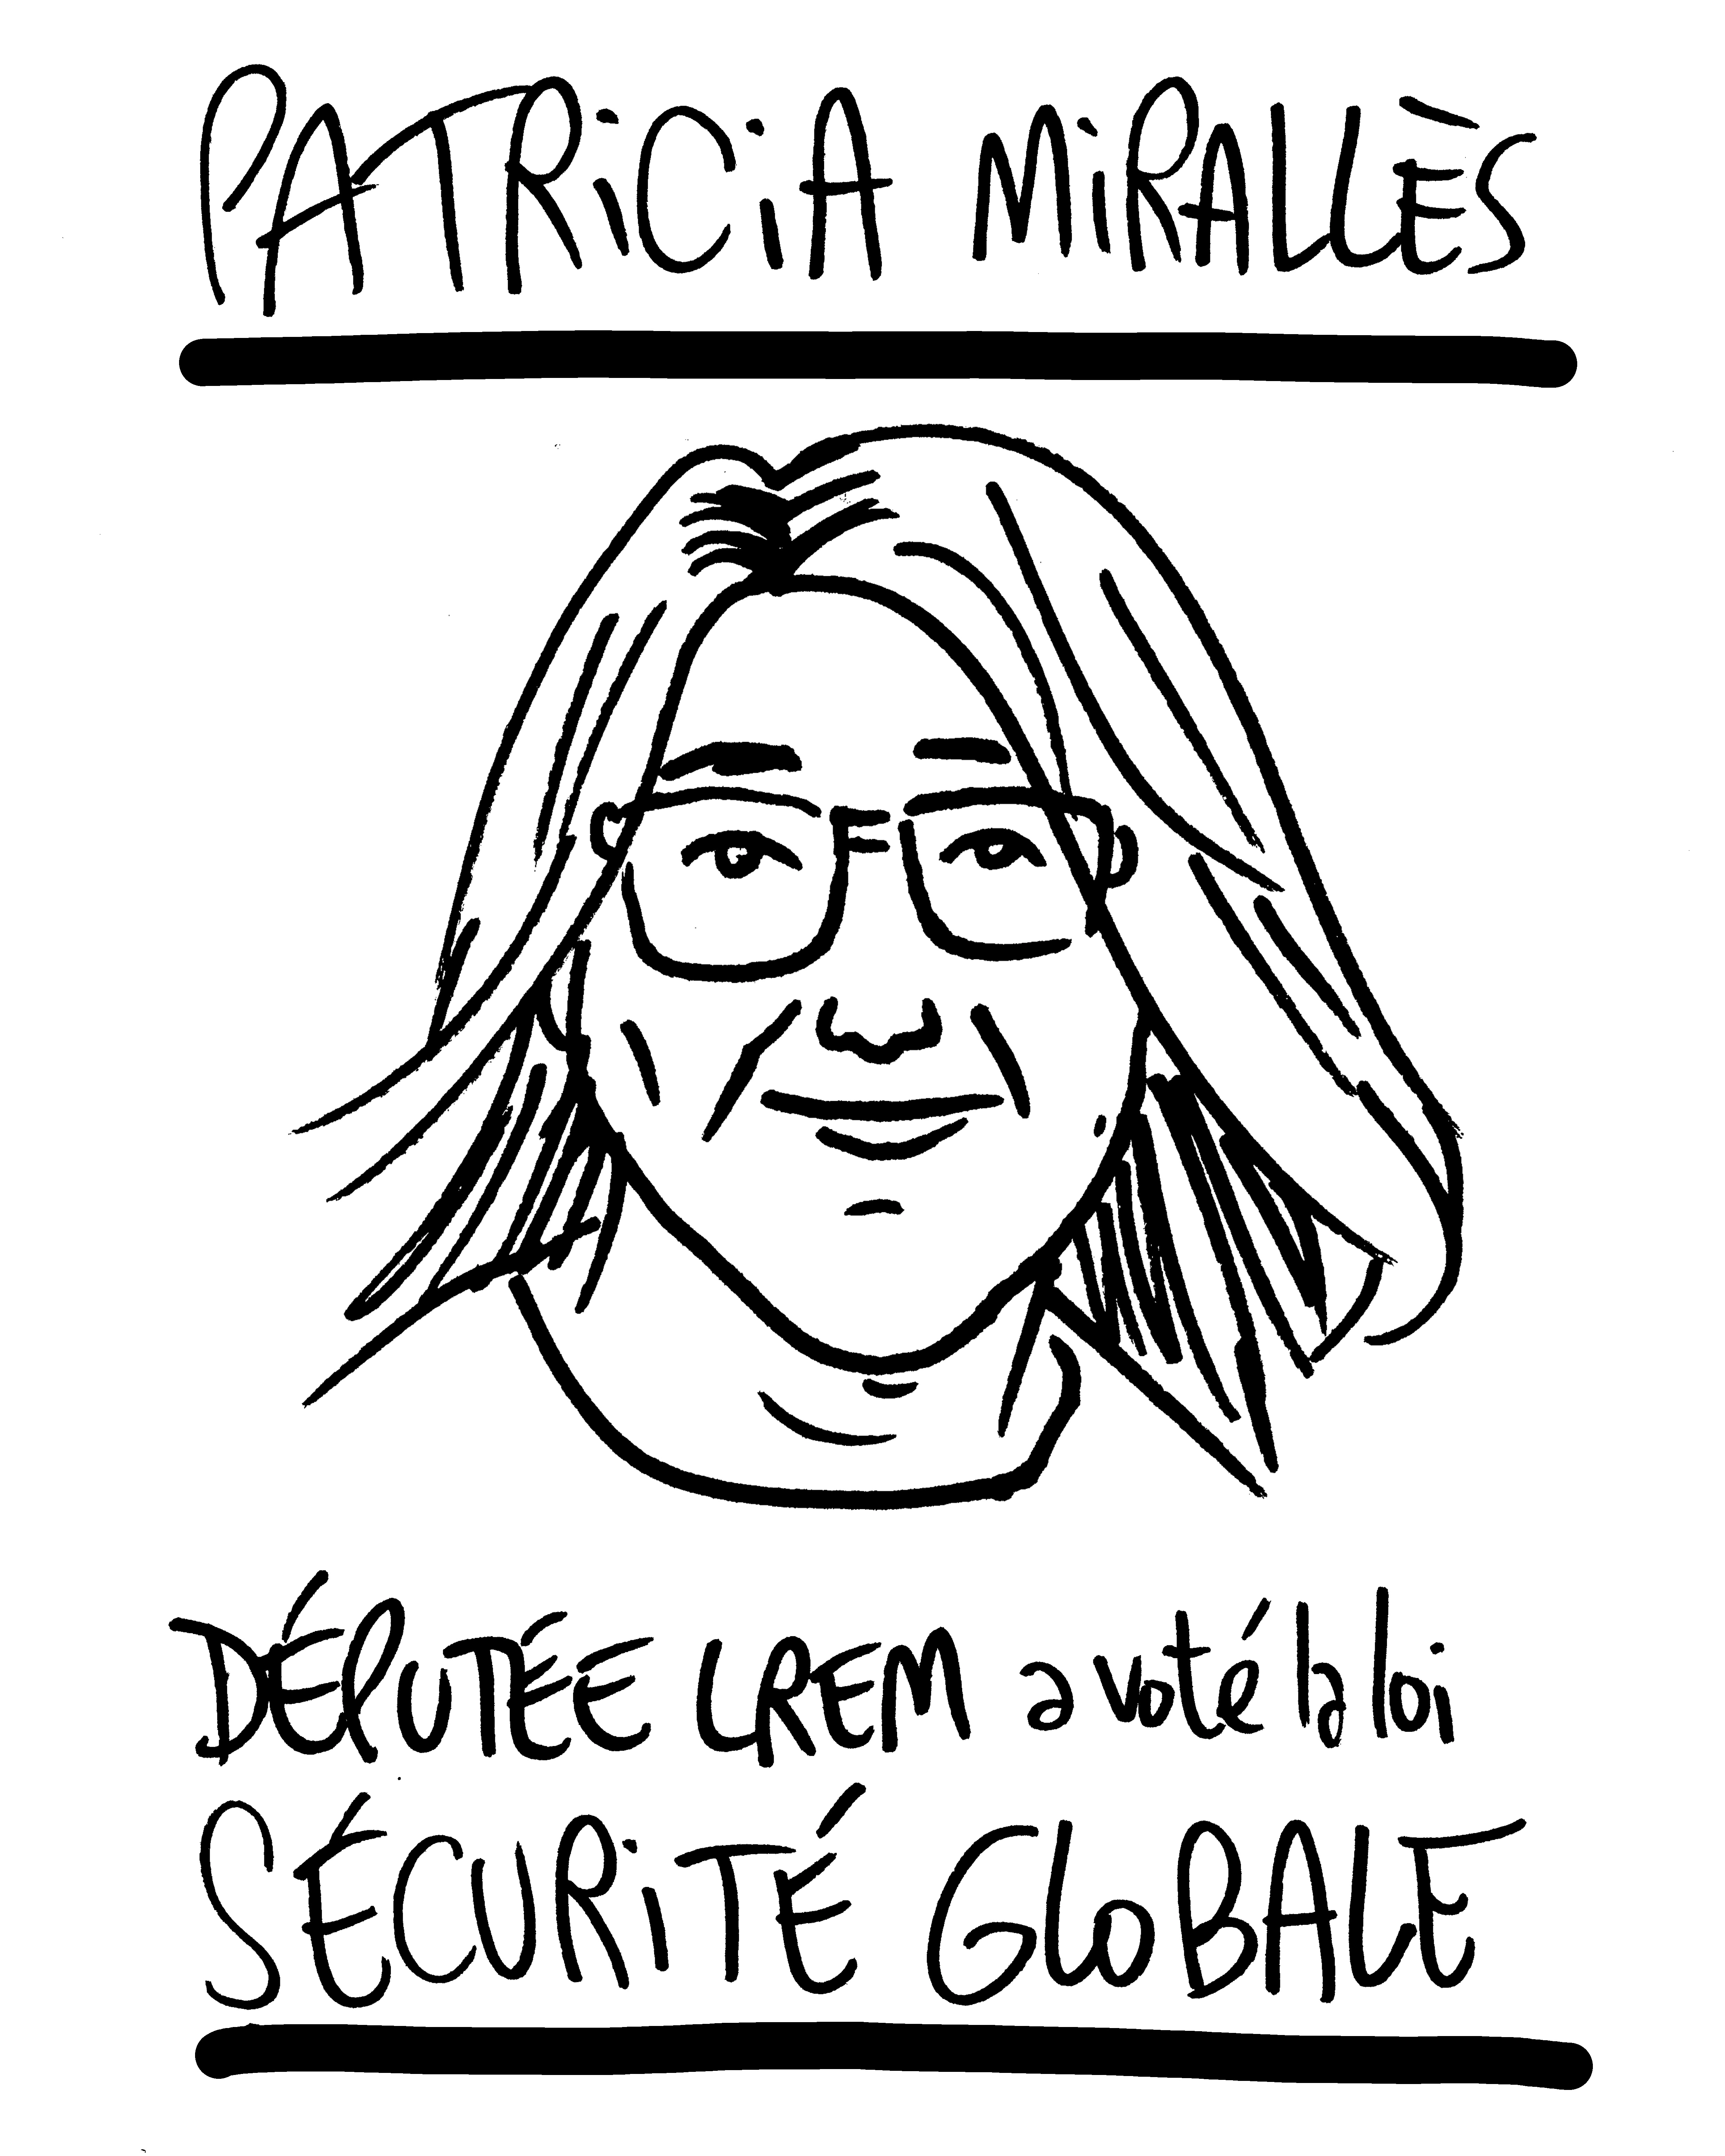 PATRiCiA MiRALLÈS
DÉPUTÉE LREM a voté la loi
SÉCURiTÉ GLoBALE